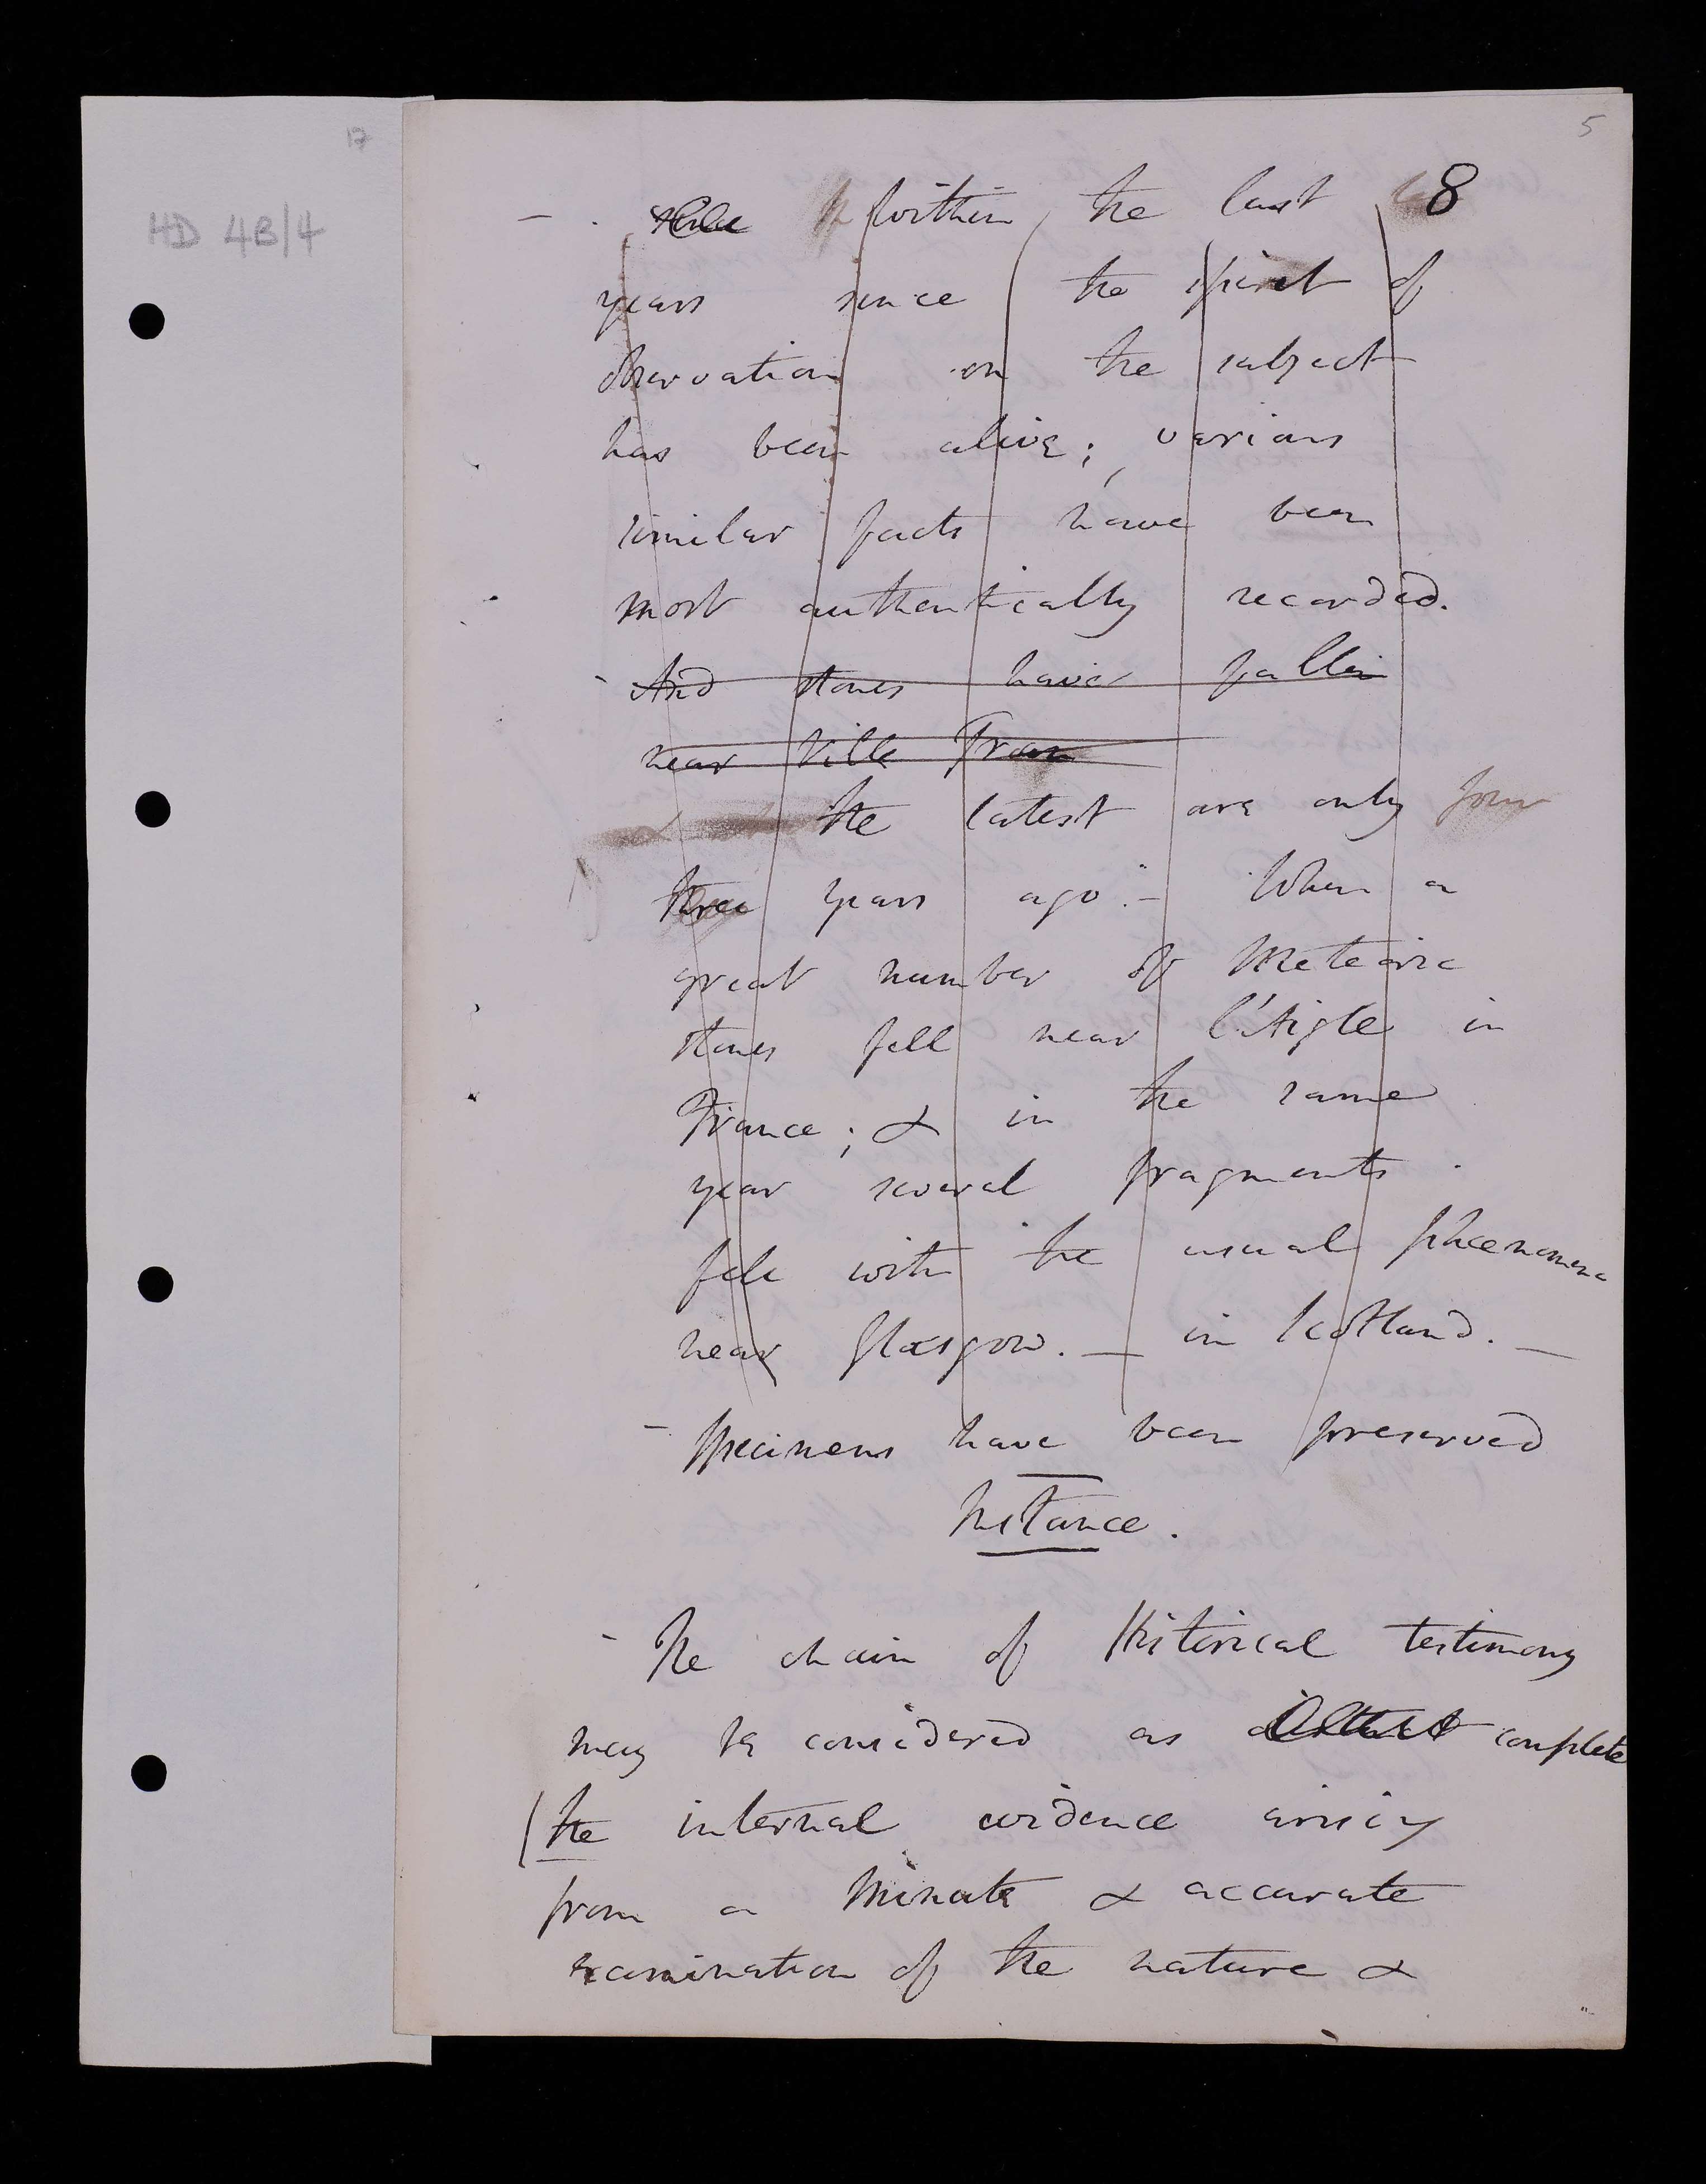 17
5
HD 4B/4
- . within the last 8
years since the spirit of
observation on the subject
has been alive; various
similar facts have been
most authentically recorded.
- And stones have fallen
near Ville Fran
The latest are only four
three years ago.- When a
great number of Meteoric
stones fell near l'Aigle in
France; & in the same
year several fragments
fell with the usual phaenomena
near Glasgow. — in Scotland. —
- Specimens have been preserved
Instance.
- The chain of Historical testimony
may be considered as complete
/the internal evidence arising
from a minute & accurate
examination of the nature &